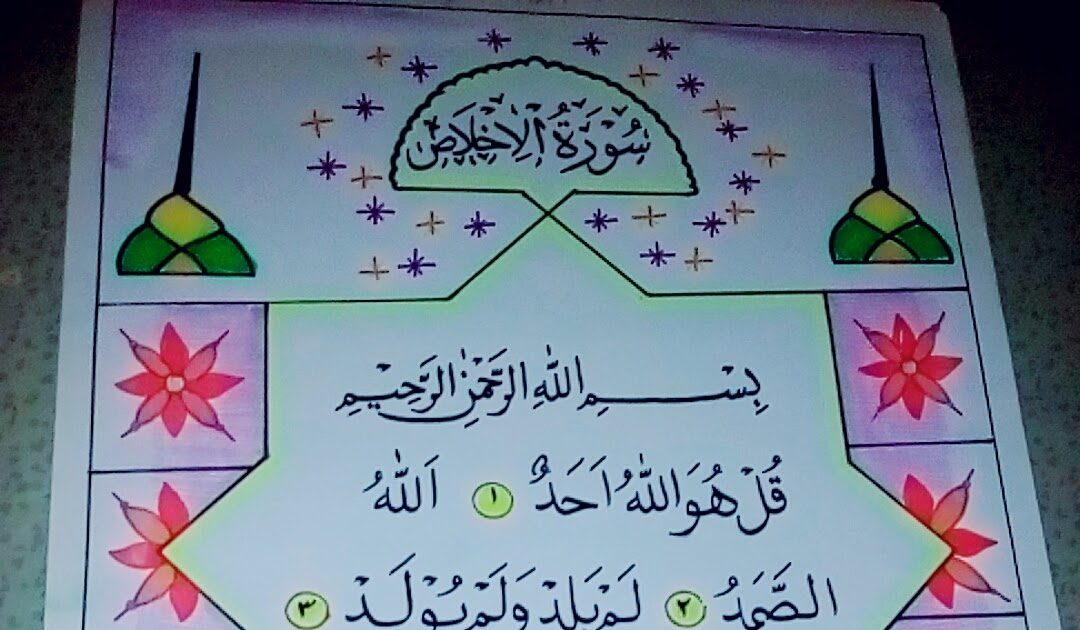 سُوْرَةُ الْاِخْلَاصِ
بِسْمِ اللّٰهِ الرَّحْمٰنِ الرَّحِيْمِ
قُلْ هُوَ اللّٰهُ اَحَدٌ ١ اَللّٰهُ
الصَّمَدُ ٢ لَمْ يَلِدْ وَلَمْ يُوْلَدْ ٣